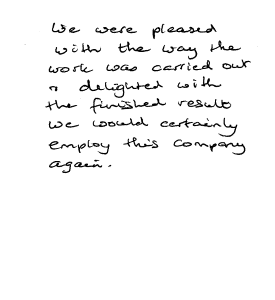 We were pleased
with the way the
work was carried out
& delighted with
the finished result
We would certainly
employ this company
again.